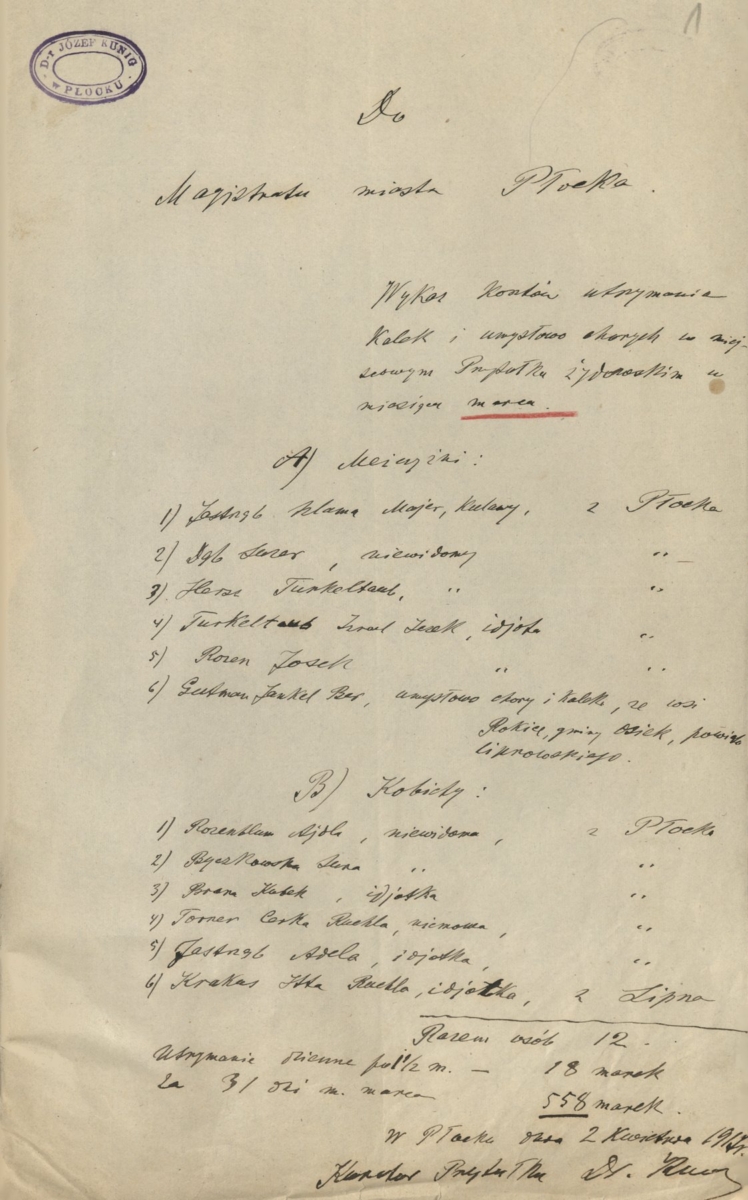 1
D-r JÓZEF KUNIG
w PŁOCKU
Do
Magistratu miasta Płocka.
Wykaz kosztów utrzymania
kalek i umysłowo chorych w miej-
scowym Przytułku żydowskim w
miesiącu marcu.
A) Mężczyźni:
1) Jastrząb Szlama Majer, kulawy, z Płocka
2) Dąb Luzer, niewidomy " –
3) Hersz Turkeltaub, " "
4) Turkeltaub Izrael Icek, idjota "
5) Rozen Josek " "
6) Gutman Jankel Ber, umysłowo chory i kaleka, ze wsi
Rokicie, gminy Osiek, powiatu
lipnowskiego.
B) Kobiety:
1) Rozenblum Ajdla, niewidoma, z Płocka
2) Byczkowska Sura " "
3) Brana , idjotka "
4) Torner Cerka Ruchla, niemowa, "
5) Jastrząb Adela, idjotka, "
6) Krakus Itta Ruchla, idjotka, z Lipna
Razem osób 12.
Utrzymanie dzienne po 1 1/2 m. — 18 marek
za 31 dni m. marca 558 marek.
w Płocku dnia 2 Kwietnia
Kurator Przytułku Dr. Kunig